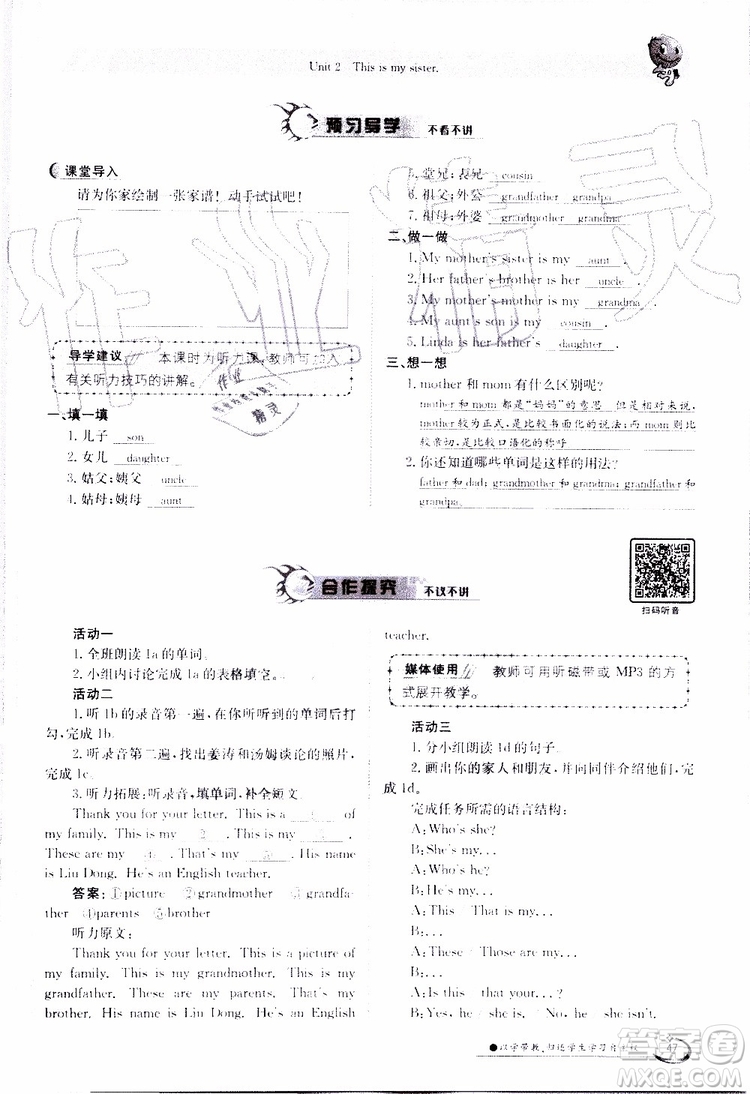 Unit 2 This is my sister.
预习导学 不看不讲
课堂导入
请为你家绘制一张家谱！动手试试吧！
导学建议 本课时为听力课，教师可加入
有关听力技巧的讲解。
一、填一填
1. 儿子 son
2. 女儿 daughter
3. 姑父；姨父 uncle
4. 姑母；姨母 aunt
5. 堂兄；表兄 cousin
6. 祖父；外公 grandfather grandpa
7. 祖母；外婆 grandmother grandma
二、做一做
1. My mother's sister is my aunt.
2. Her father's brother is her uncle.
3. My mother's mother is my grandma.
4. My aunt's son is my cousin.
5. Linda is her father's daughter.
三、想一想
1. mother 和 mom 有什么区别呢？
mother 和 mom 都是“妈妈”的意思 但相对来说，
mother 较为正式，是比较书面化的说法；而 mom 则比
较亲切，是比较口语化的称呼
2. 你还知道哪些单词是这样的用法？
father 和 dad；grandmother 和 grandma；grandfather 和
grandpa.
合作探究 不议不讲
扫码听音
活动一
1. 全班朗读 1a 的单词。
2. 小组内讨论完成 1a 的表格填空。
活动二
1. 听 1b 的录音第一遍，在你所听到的单词后打
勾，完成 1b。
2. 听录音第二遍，找出姜涛和汤姆谈论的照片，
完成 1c。
3. 听力拓展：听录音，填单词，补全短文。
Thank you for your letter. This is a
of my family. This is my 2 . This is my 3 .
These are my 4 . That's my . His name
is Liu Dong. He is an English teacher.
答案：①picture ②grandmother ③grandfa-
ther ④parents ⑤brother
听力原文：
Thank you for your letter. This is a picture of
my family. This is my grandmother. This is my
grandfather. These are my parents. That's my
brother. His name is Liu Dong. He is an English
teacher.
媒体使用 教师可用听磁带或 MP3 的方
式展开教学。
活动三
1. 分小组朗读 1d 的句子。
2. 画出你的家人和朋友，并向同伴介绍他们，完
成 1d。
完成任务所需的语言结构：
A: Who's she?
B: She's my...
A: Who's he?
B: He's my...
A: This That is my...
B: ...
A: These Those are my...
B: ...
A: Is this that your...?
B: Yes, he is. No, he she isn't.
●以学带教，归还学生学习自主权 47